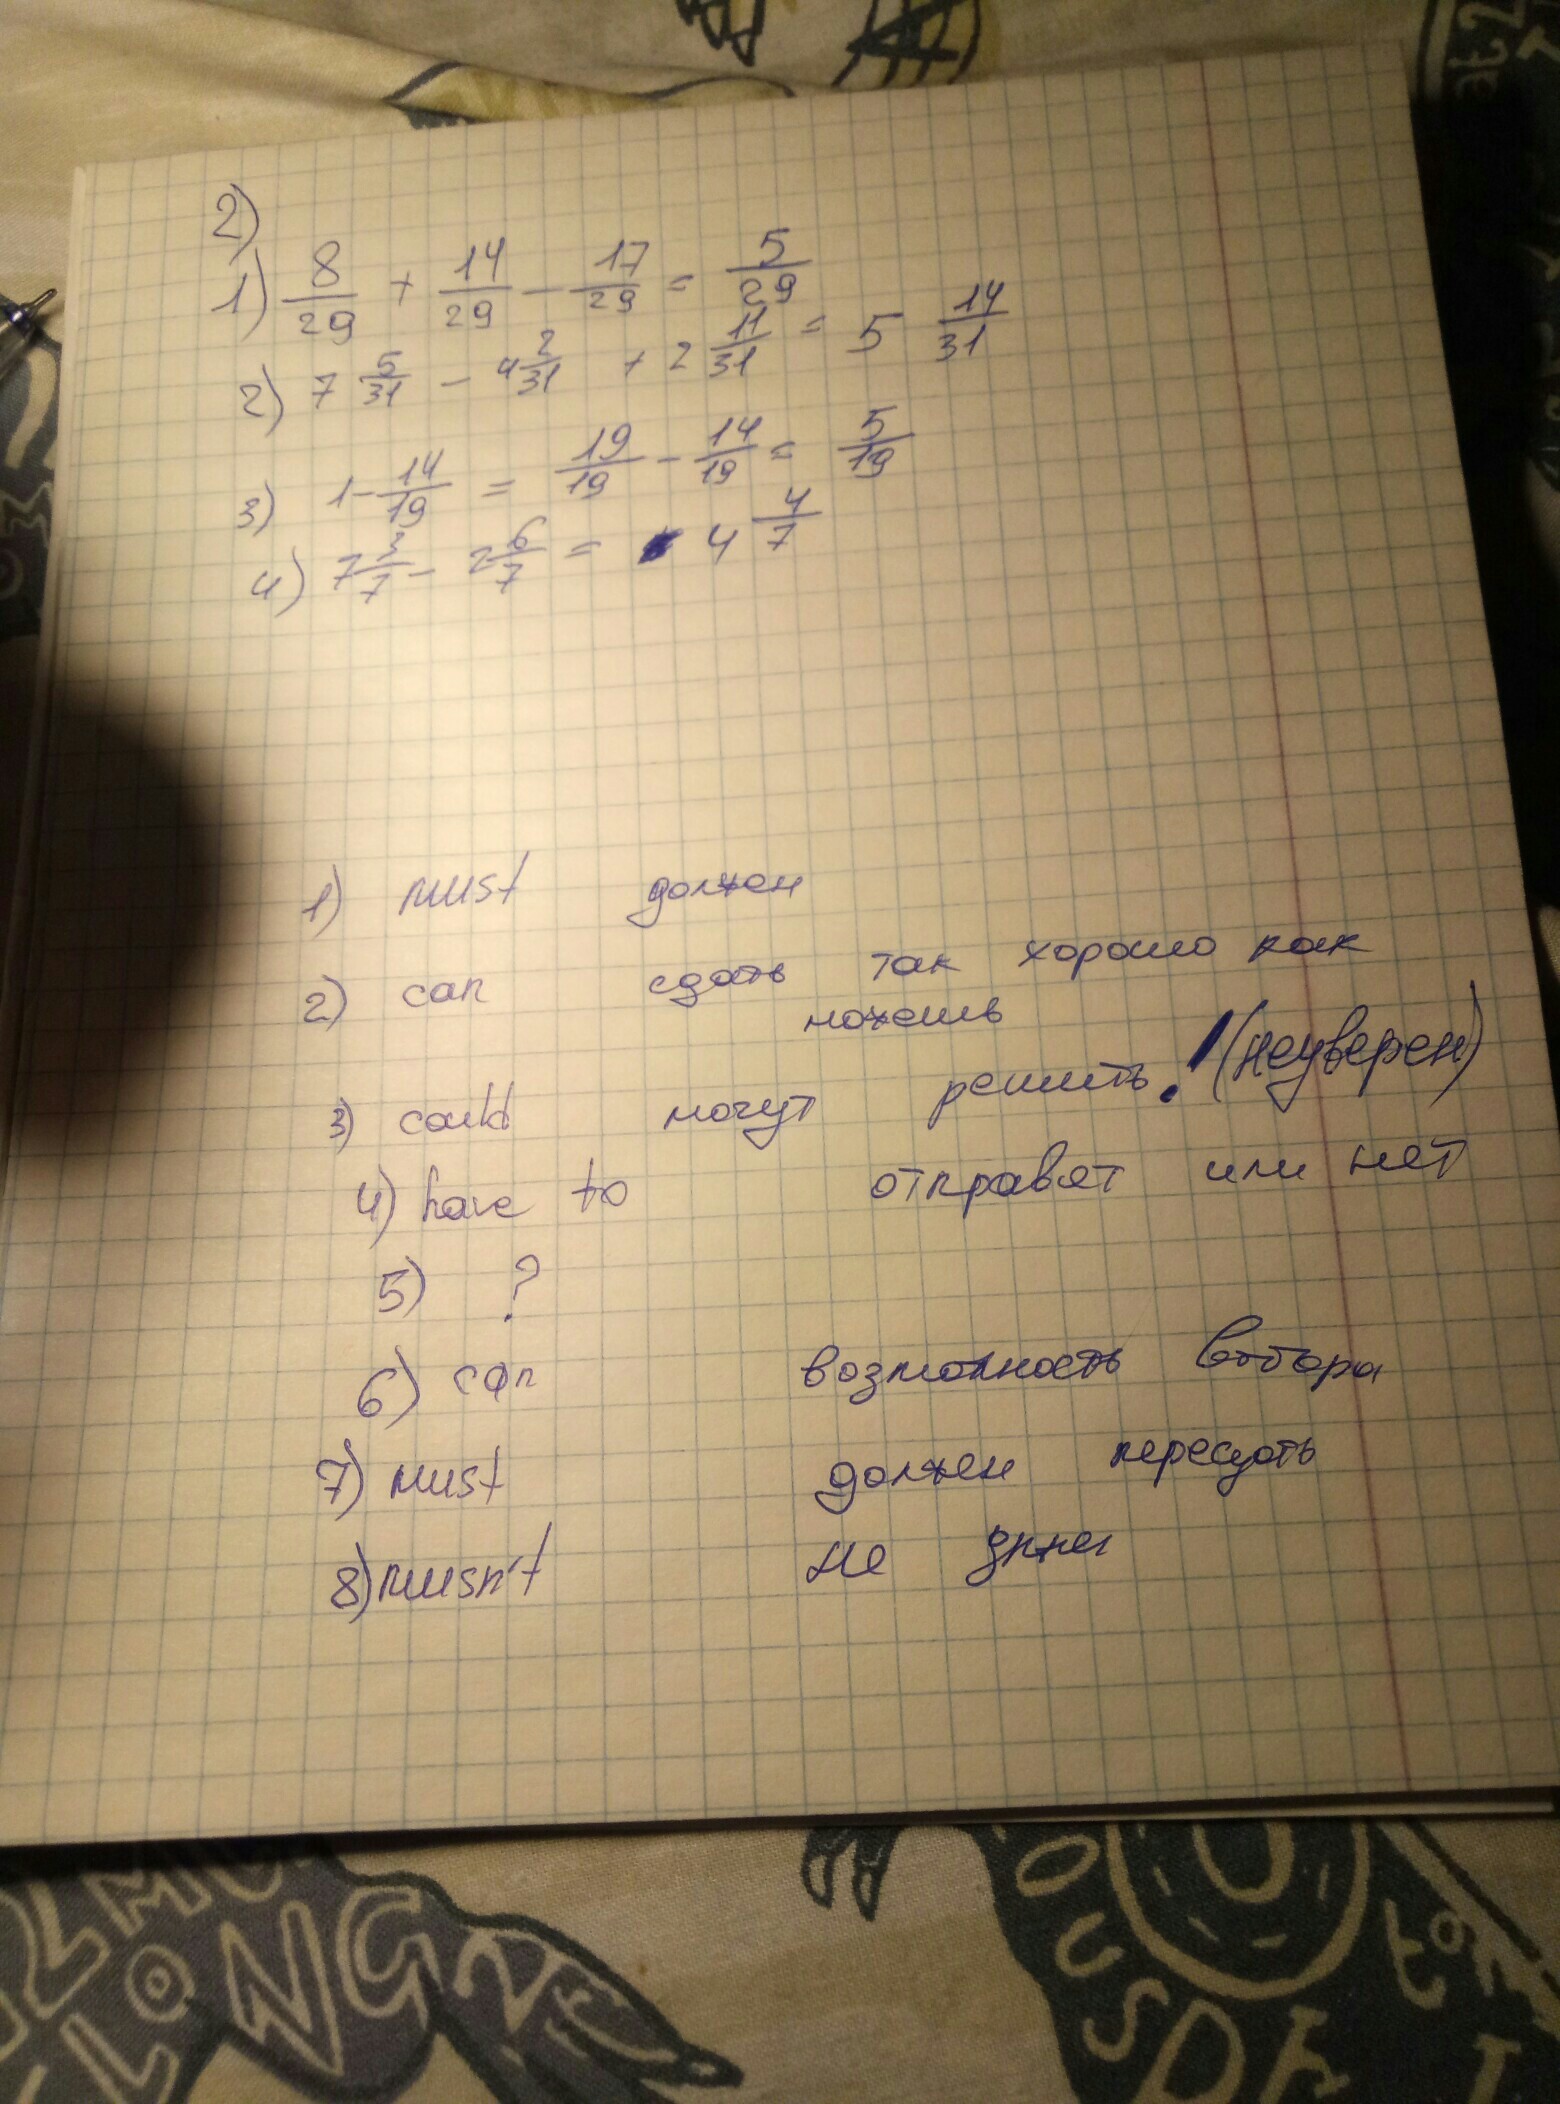 2)
1) 8/29 + 14/29 - 17/29 = 5/29
2) 7 5/31 - 4 2/31 + 2 11/31 = 5 14/31
3) 1 - 14/19 = 19/19 - 14/19 = 5/19
4) 7 3/7 - 2 6/7 = 4 4/7
1) must должен
2) can сдать так хорошо как
можешь
3) could могут решить. (неуверен)
4) have to отправят или нет
5) ?
6) can возможность выбора
7) must должен пересдать
8) musn't не
LONG